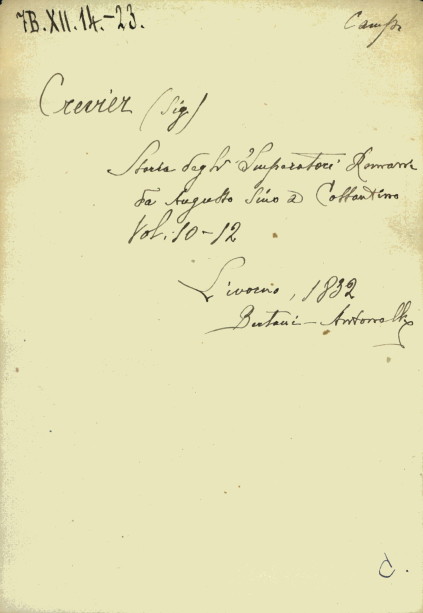 7B.XII.14.-23.
Camp.
Crevier (Sig.)
Storia degli Imperatori Romani
da Augusto sino a Costantino
Vol. 10-12
Livorno, 1832
Bertani - Antonelli
C.